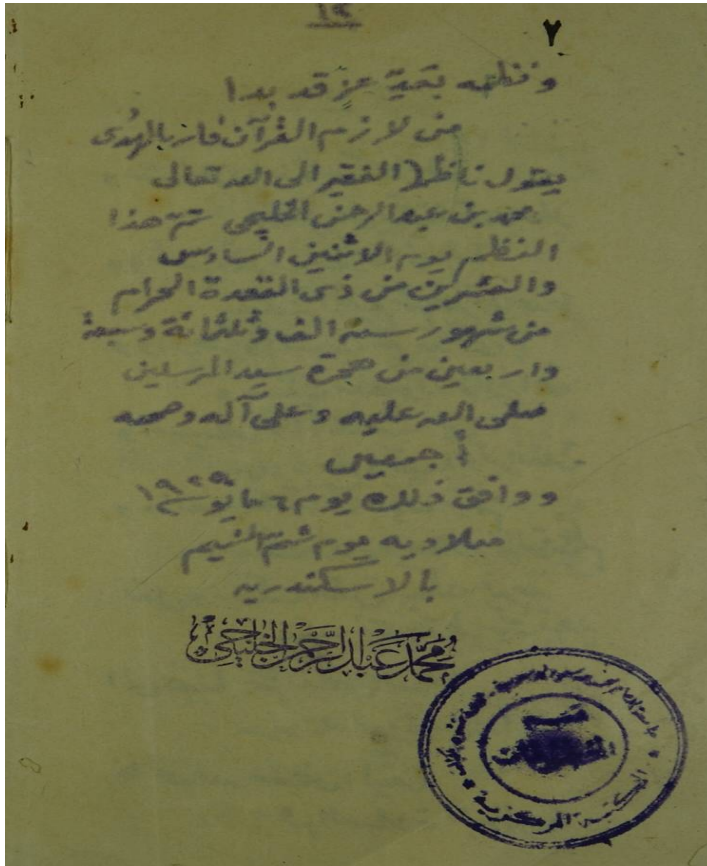 ١٢
٧
ونظمه بقية عز قد بدا
من لازم القرآن فاز بالهدى
يقول ناظمه الفقير الى الله تعالى
محمد بن عبد الرحمن الخليجى تم هذا
النظم يوم الاثنين السادس
والعشرين من ذى القعدة الحرام
من شهور سنة الف وثلثمائة وسبعة
واربعين من هجرة سيد المرسلين
صلى الله عليه وعلى آله وصحبه
أجمعين
ووافق ذلك يوم ٦ مايو سنة ١٩٢٩
ميلاديه يوم شم النسيم
بالاسكندريه
محمد عبد الرحمن الخليجى
المكتبة المركزية